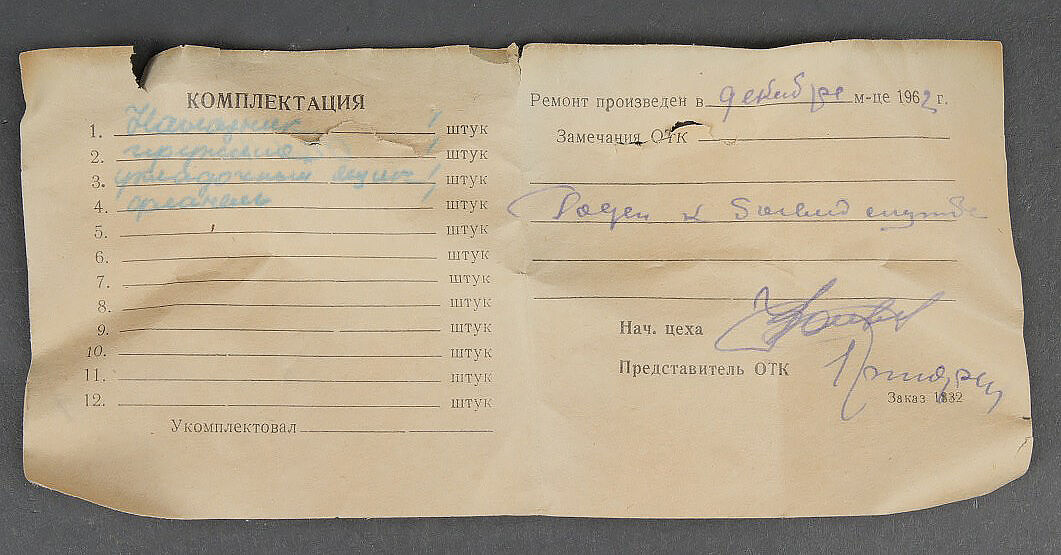 КОМПЛЕКТАЦИЯ
1. Наглазник 1 штук
2. 1 штук
3. укладочный ящик 1 штук
4. фланель 1 штук
5. штук
6. штук
7. штук
8. штук
9. штук
10. штук
11. штук
12. штук
Укомплектовал
Ремонт произведен в декабре м-це 1962 г.
Замечания ОТК
Годен к
Нач. цеха
Представитель ОТК
Заказ 1832